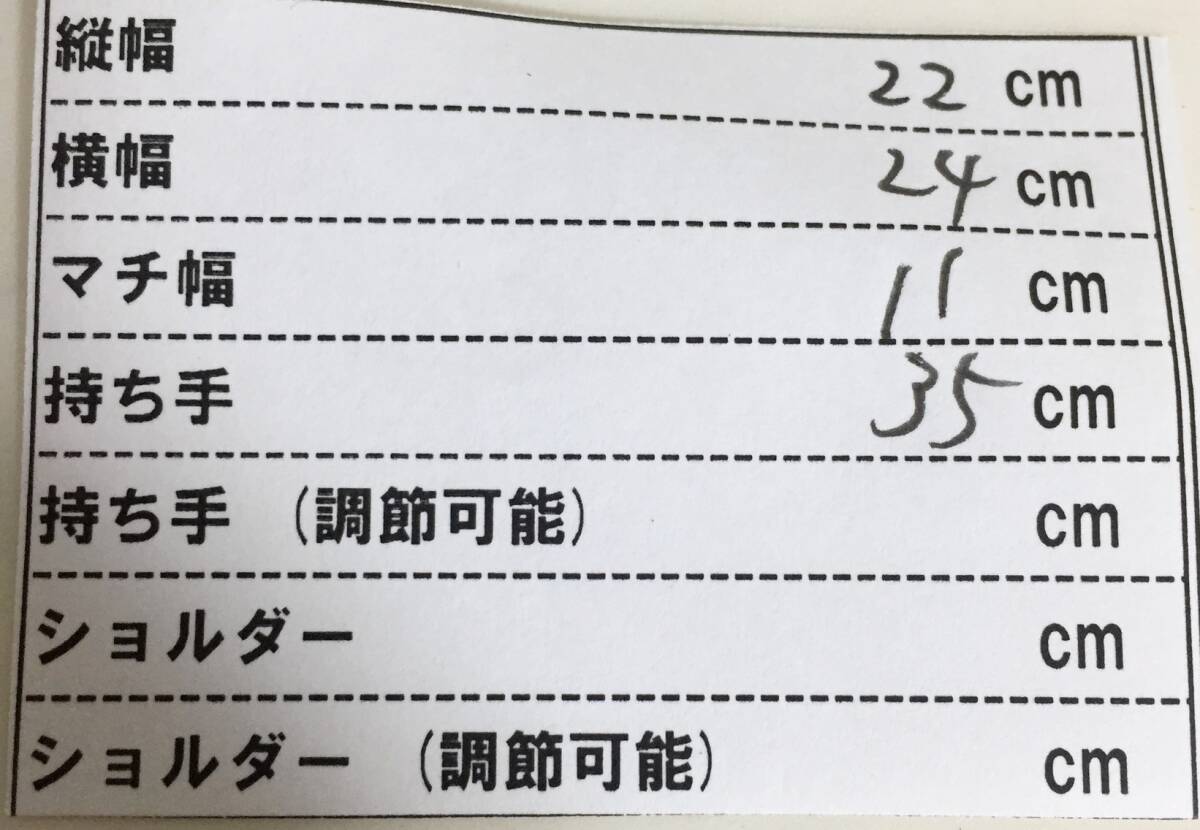 縦幅 22 cm
横幅 24 cm
マチ幅 11 cm
持ち手 35 cm
持ち手 (調節可能) cm
ショルダー cm
ショルダー (調節可能) cm